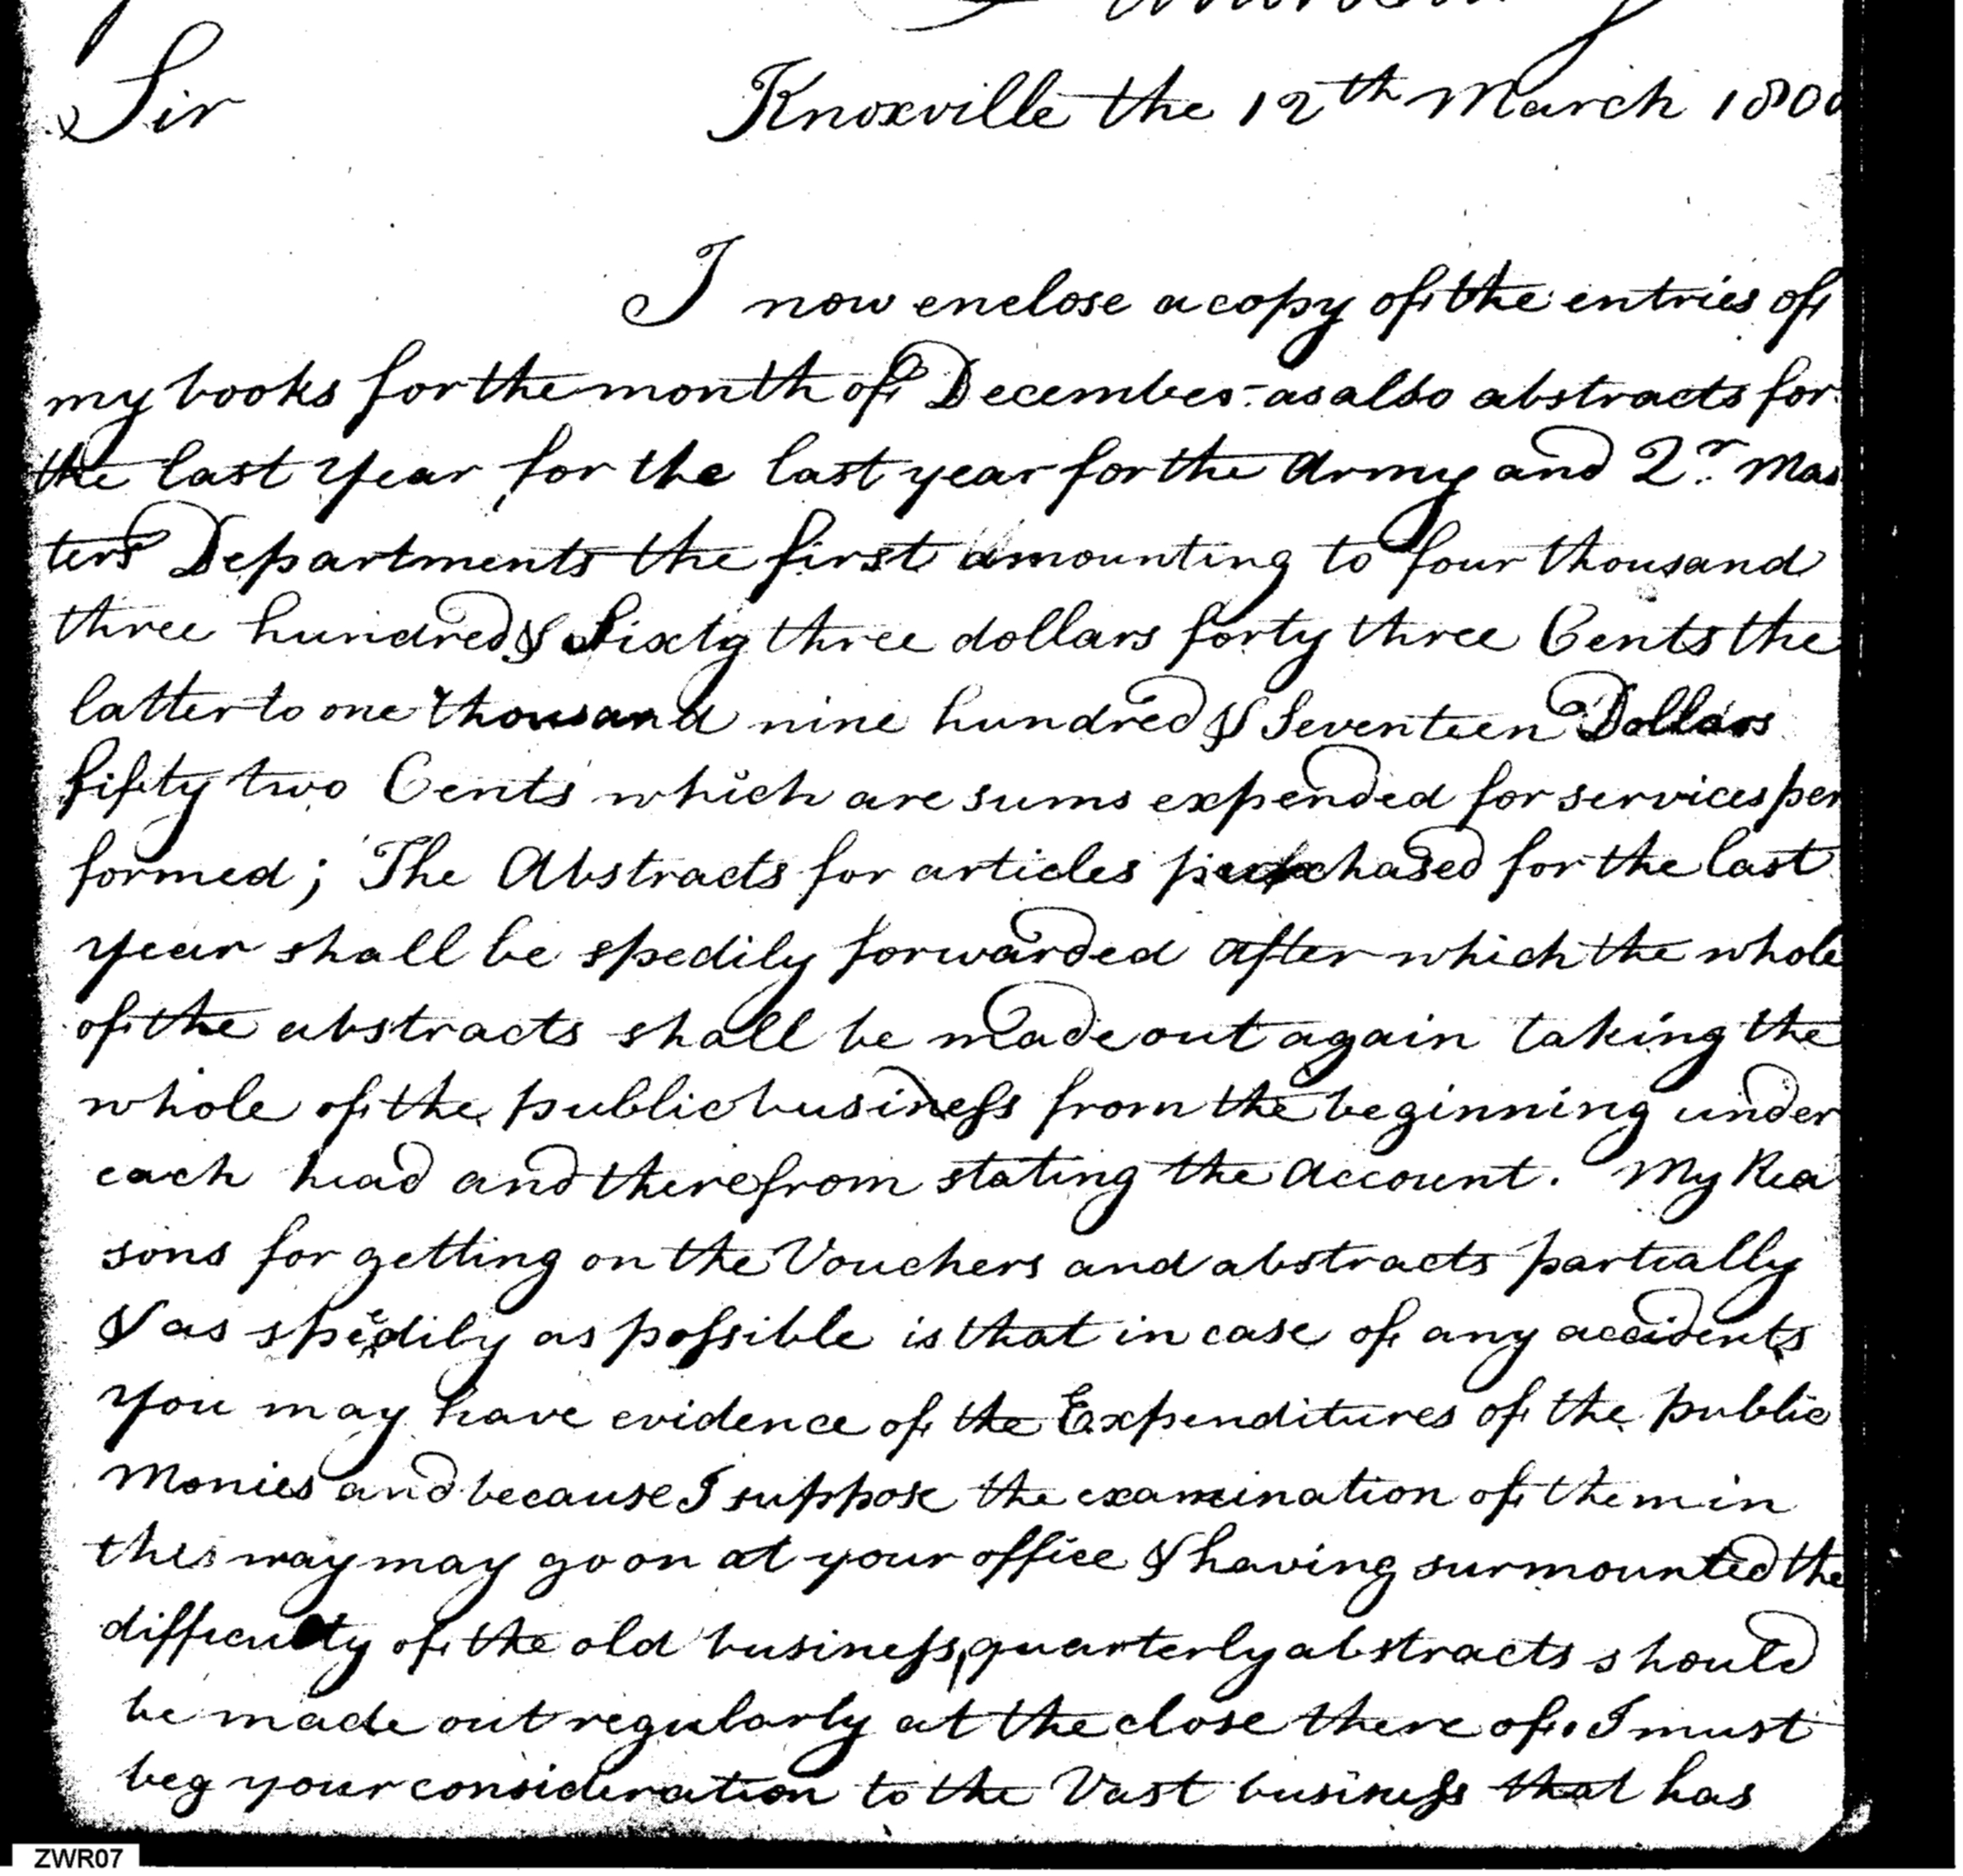 Sir Knoxville the 12th March 1800
I now enclose a copy of the entries of
my books for the month of December - as also abstracts for
the last year for the last year for the Army and Qr. Mas
ters Departments the first amounting to four thousand
three hundred & Sixty three dollars forty three Cents the
latter to one thousand nine hundred & Seventeen Dollars
fifty two Cents which are sums expended for services per
formed; The Abstracts for articles purchased for the last
year shall be spedily forwarded after which the whole
of the abstracts shall be made out again taking the
whole of the public business from the beginning under
each head and therefrom stating the account. My Rea
sons for getting on the Vouchers and abstracts partially
& as spedily as possible is that in case of any accidents
you may have evidence of the Expenditures of the public
Monies and because I suppose the examination of them in
this way may go on at your office & having surmounted the
difficulty of the old business, quarterly abstracts should
be made out regularly at the close there of. I must
beg your consideration to the Vast business that has
ZWR07